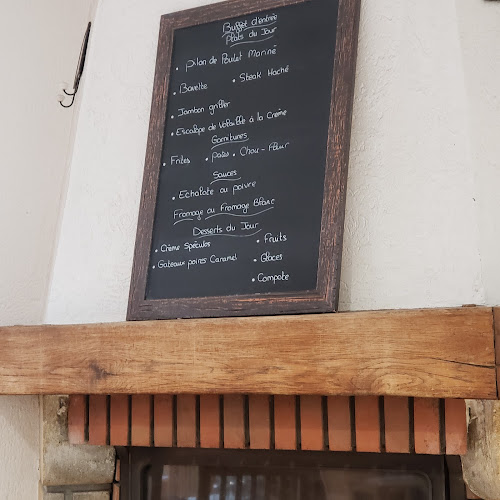 Buffet d'entrée
Plats du Jour
• pilon de Poulet Mariné
• Bavette • Steak Haché
• Jambon griller
• Escalope de Volaille à la Crème
Garnitures
• Frites • pates • Chou-fleur
Sauces
• Echalote ou poivre
Fromage ou fromage Blanc
Desserts du Jour
• Crème Spéculos • Fruits
• Gateaux poires Caramel • Glaces
• Compote